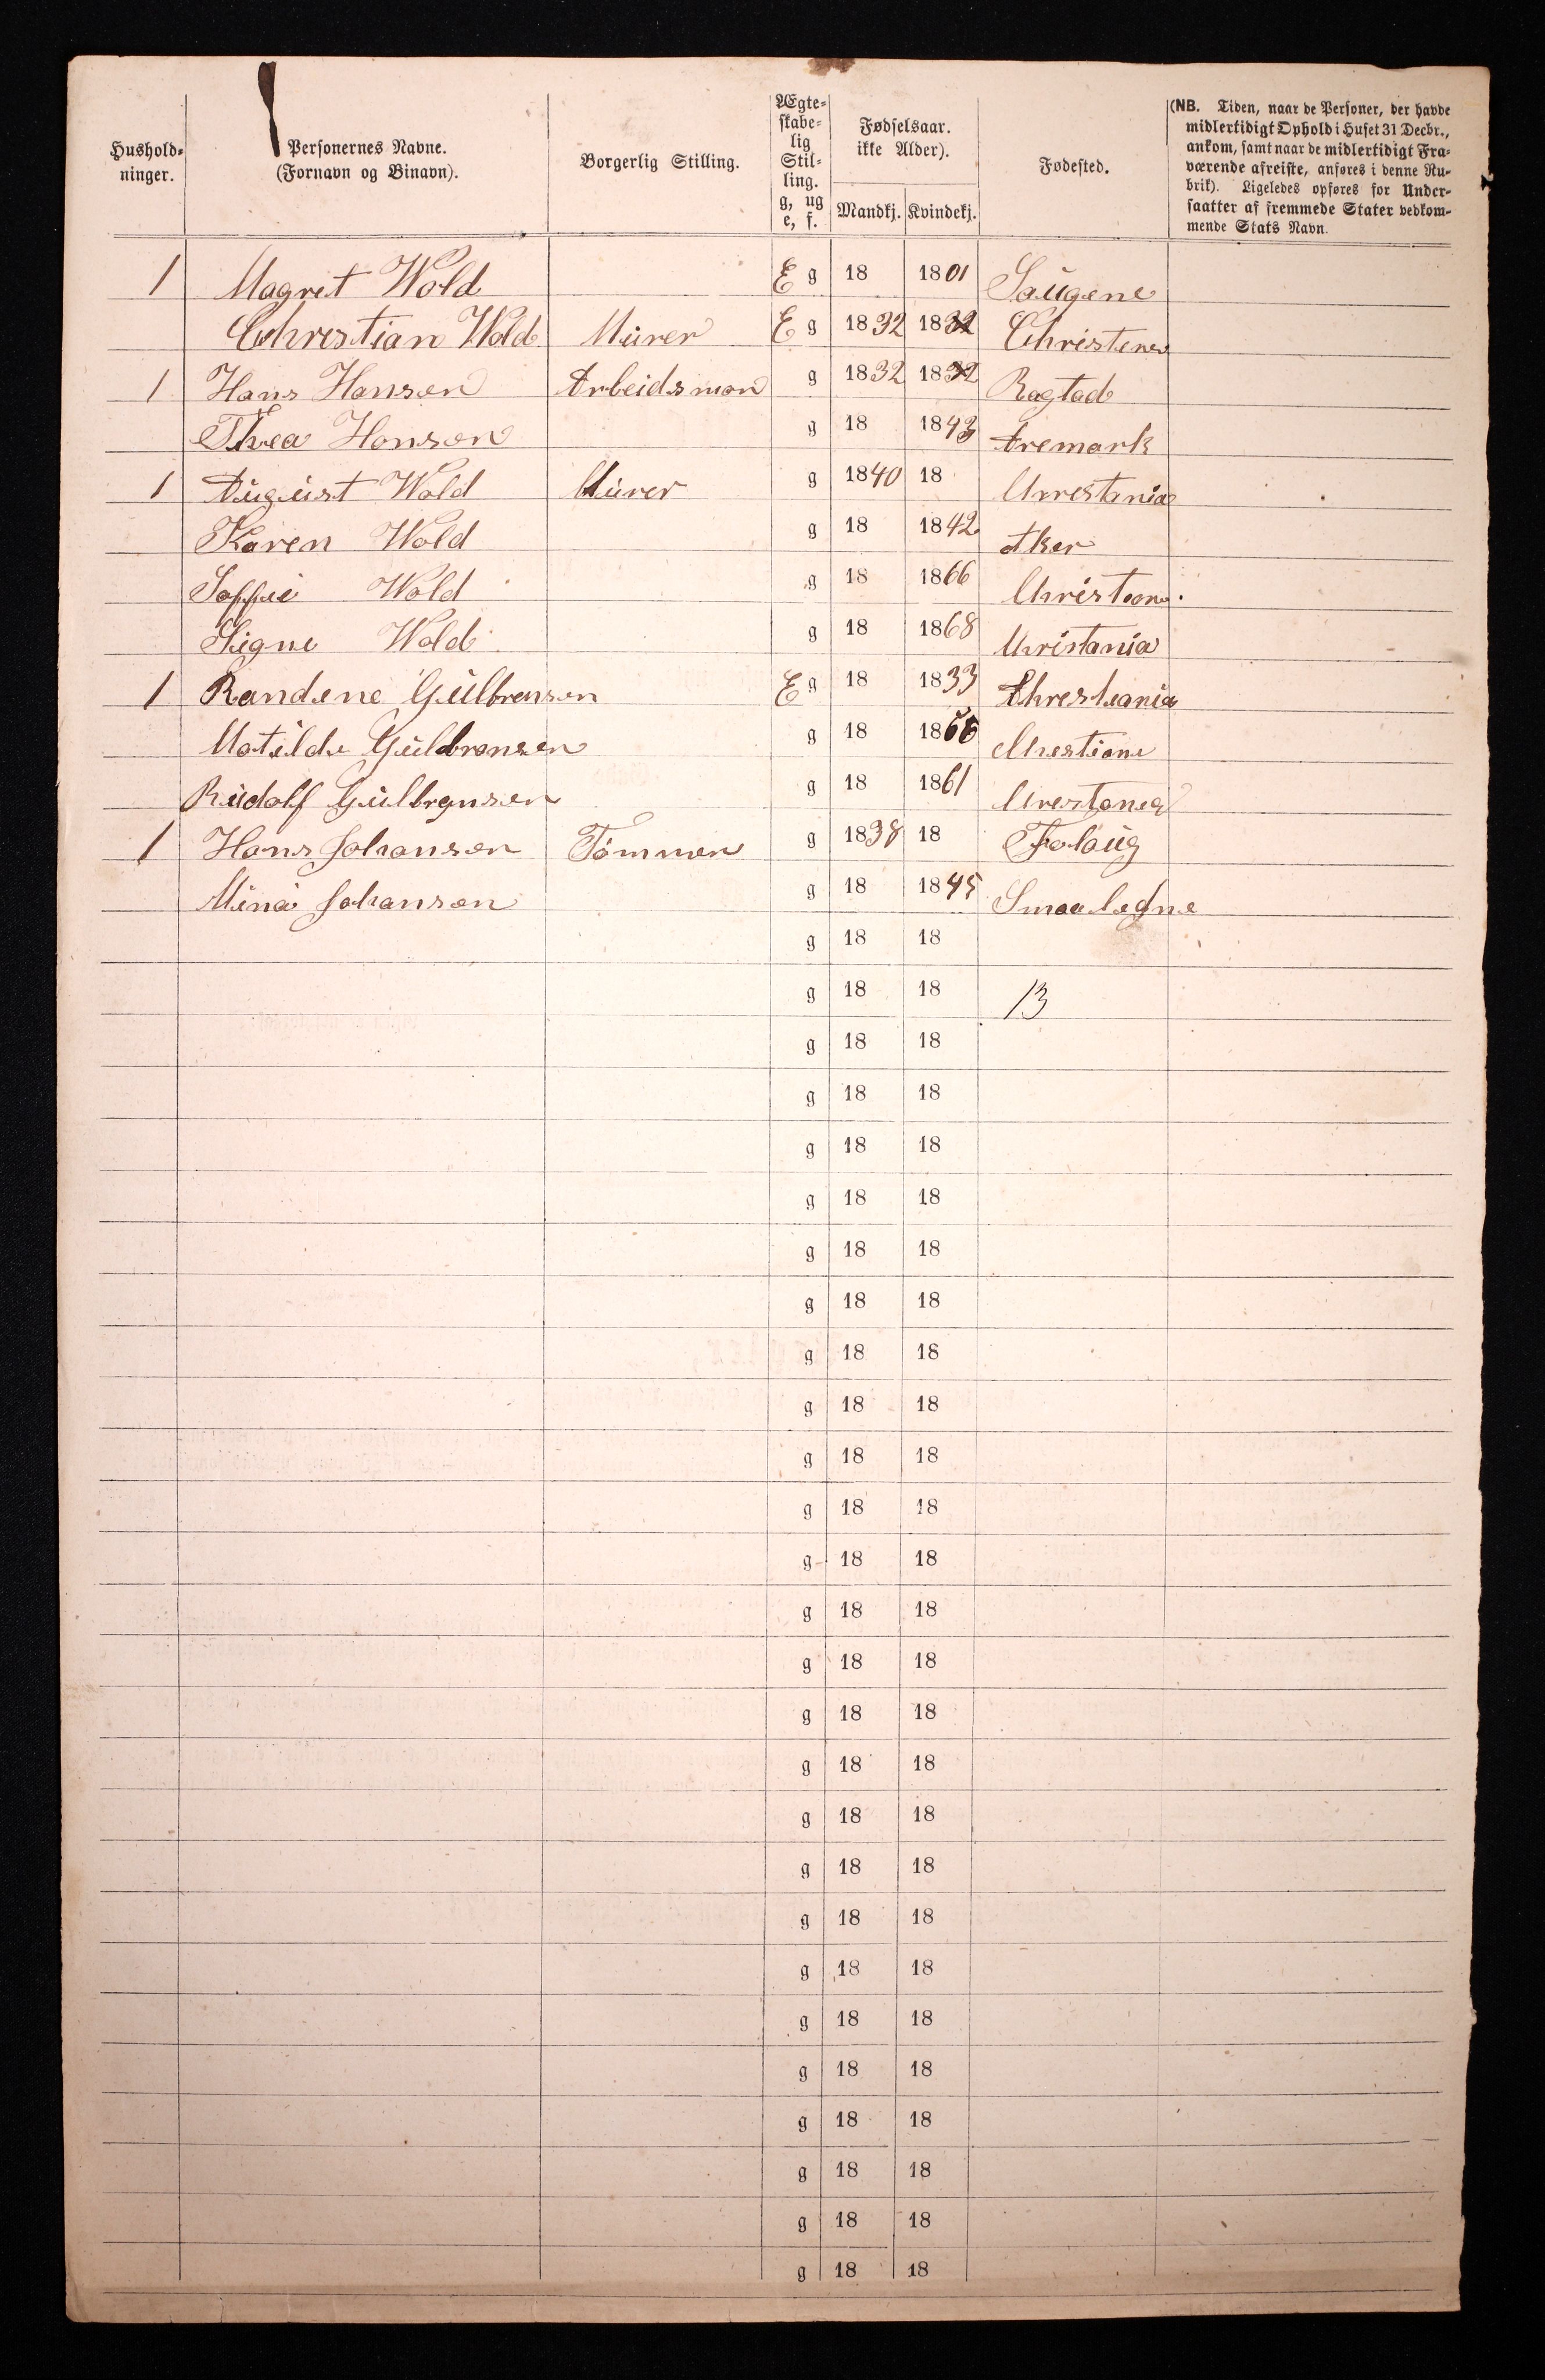 Hushold-
ninger.
Personernes Navne.
(Fornavn og Binavn).
Borgerlig Stilling.
Ægte-
skabe-
lig
Stil-
ling.
g, ug
e, f.
Fødselsaar.
ikke Alder).
Mandkj. Kvindekj.
Fødested.
(NB. Tiden, naar de Personer, der havde
midlertidigt Ophold i Huset 31 Decbr.,
ankom, samt naar de midlertidigt Fra-
værende afreiste, anføres i denne Ru-
brik). Ligeledes opføres for Under-
saatter af fremmede Stater vedkom-
mende Stats Navn.
1 Magret Wold E g 18 1801 Saugene
Chrestian Wold Murer E g 1832 1832 Christene
1 Hans Hansen Arbeidsman g 1832 1832 Ragtad
Threa Hansen g 18 1843 Aremark
1 August Wold Murer g 1840 18 Chrestania
Karen Wold g 18 1842 Aker
Soffie Wold g 18 1866 Christian.
Signe Wold g 18 1868 Christania
1 Randene Gulbransen E g 18 1833 Chrestiania
Matilde Guldbransen g 18 1866 Chrestiane
Rudolf Gulbrgnsen g 18 1861 Chrestania
1 Hans Johansen Tømmer g 1838 18 Foloug
Mina Johansen g 18 1845 Smaalegne
g 18 18
g 18 18 13
g 18 18
g 18 18
g 18 18
g 18 18
g 18 18
g 18 18
g 18 18
g 18 18
g 18 18
g 18 18
g 18 18
g 18 18
g 18 18
g 18 18
g 18 18
g 18 18
g 18 18
g 18 18
g 18 18
g 18 18
g 18 18
g 18 18
g 18 18
g 18 18
g 18 18